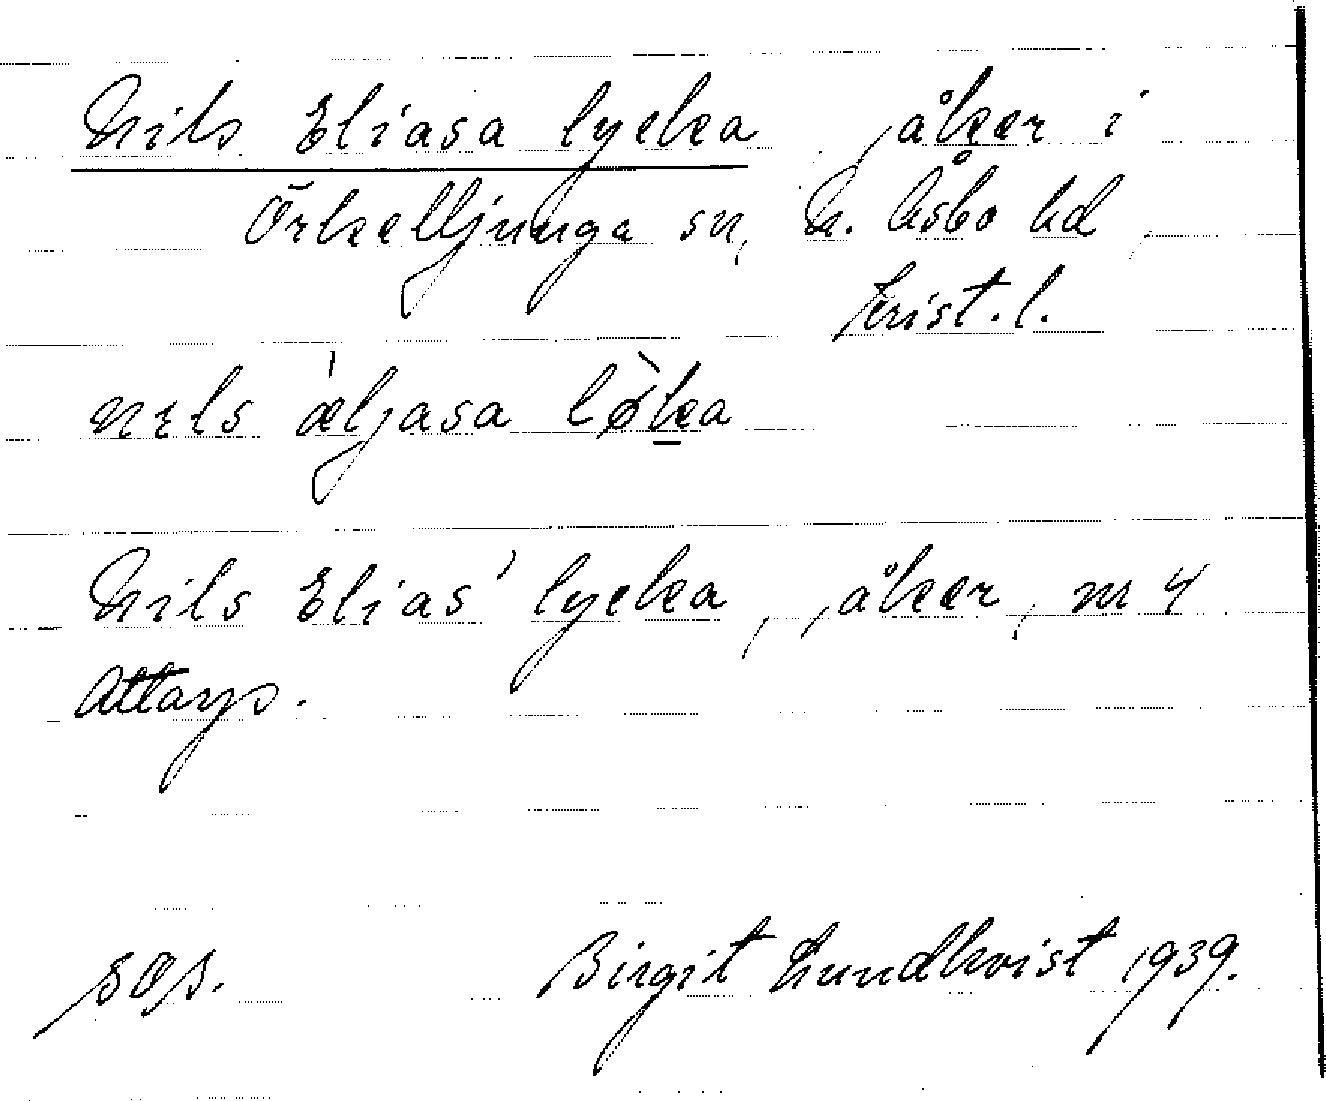 Nils Eliasa lycka , åker i
Örkelljunga sn, N. Åsbo hd,
Krist. l.
nɪls ˈæljasa lø̀ka
Nils Elias' lycka, åker, nr 4
Attarp.
sep. Birgit Lundkvist 1939.